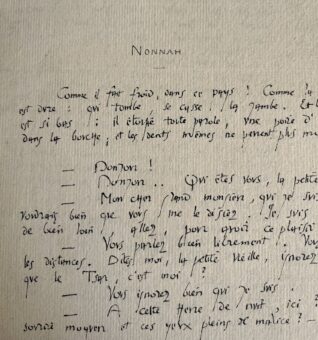 NONNAH
Comme il fait froid, dans ce pays ! Comme la
est dure : qui tombe, se casse la jambe. Et l
est si bas : il étouffe toute parole, une poie d'
dans la bouche, et les dents mêmes ne peuvent plus m
— Bonjour !
— Bonjour.. Qui êtes vous, la petite
— Mon cher grand monsieur, qui je suis
voudrais bien que vous me le disiez. Je suis
de bien loin allez, pour avoir ce plaisir
— Vous parlez bien librement. Vous
les distances. Dites moi, la petite vieille, ignorez
que le Tsar, c'est moi ?
— Vous ignorez bien qui je suis.
— A cette heure de nuit, ici ?
sourire moyen et ces yeux pleins de malice ? —